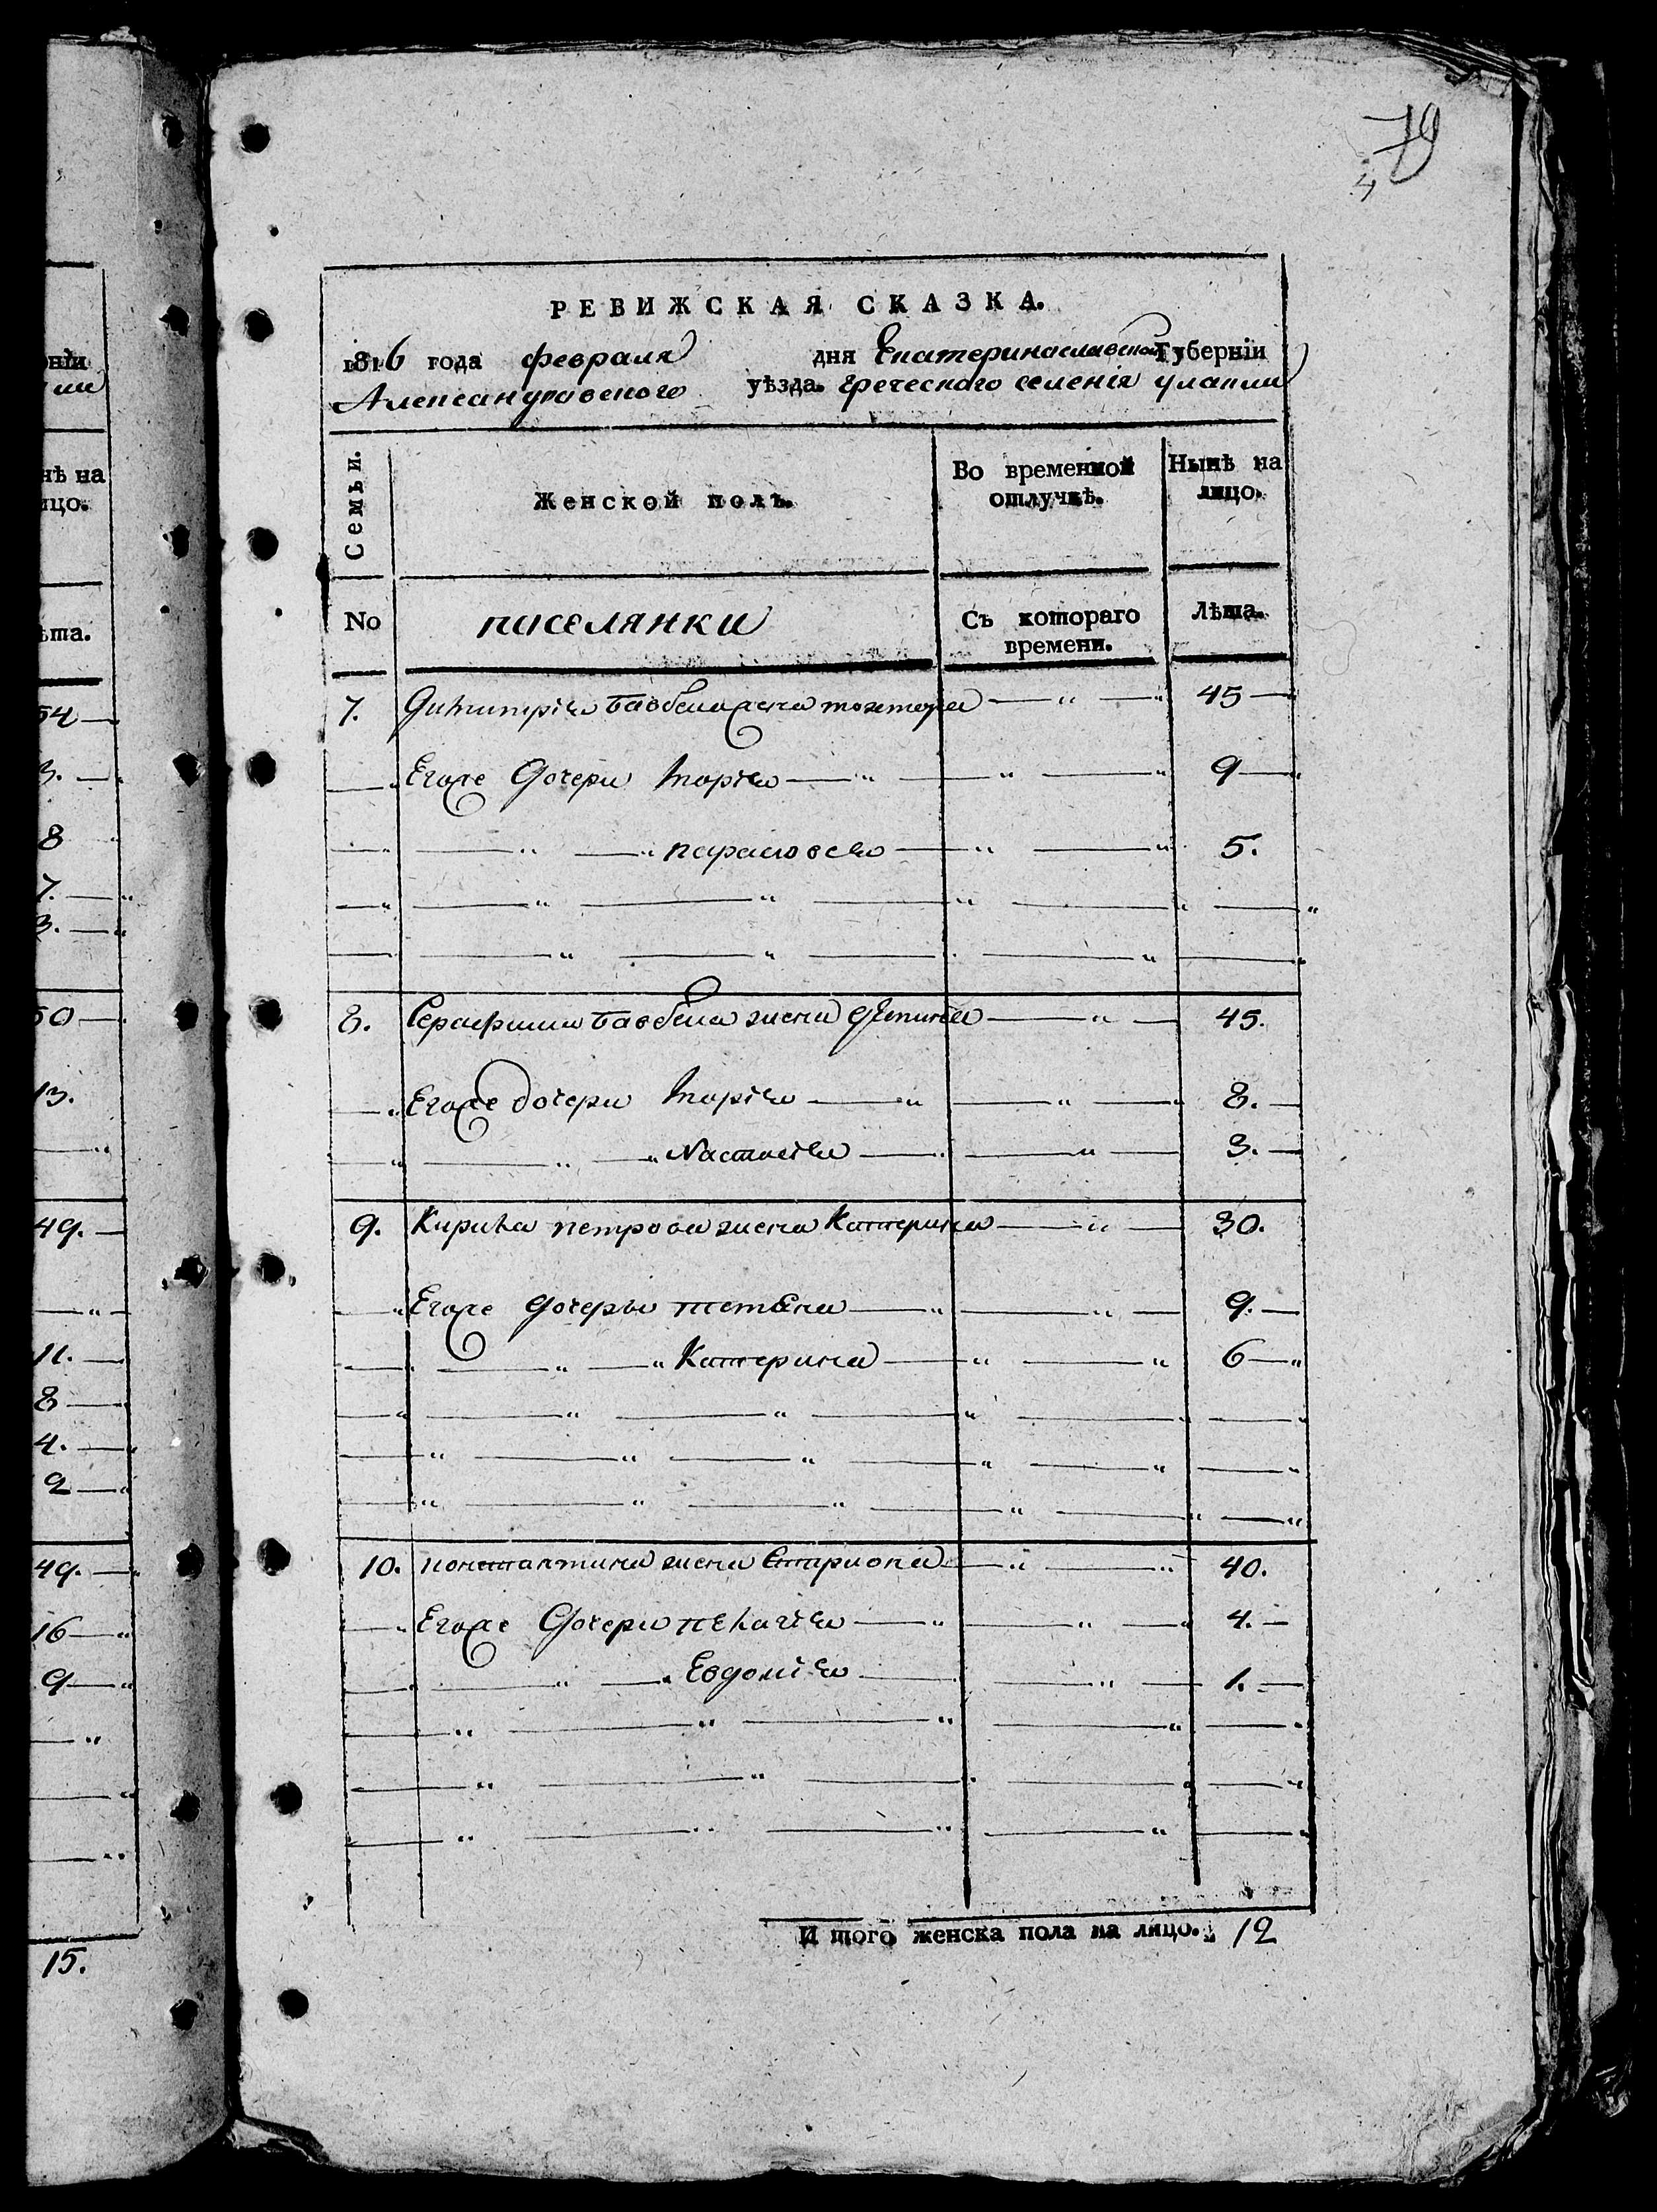 79
4
РЕВИЖСКАЯ СКАЗКА.
1816 года февраля дня Екатеринославской Губерніи
Александровского уѣзда. греческого селенія улаклы
Семьи. Женской полъ. Во временной отлучкѣ. Нынѣ на лицо.
No поселянки Съ котораго времени. Лѣта.
7. Димитрія Павбела жена 45
Егоже Дочери Марія 9
параскова 5.
8. Серафима Павбела жена 45.
Егоже дочери Марія 8.
Настасія 3.
9. Кирика петрова жена Катерина 30.
Егоже дочеры тетяна 9.
Катерина 6
10. константина жена 40.
Егоже Дочери пелагія 4.
Евдокія 1.
И того женска пола на лицо. 12
нѣ на
ицо.
ѣта.
54
3.
8
7.
3.
50
13.
49.
11.
8
4.
2
49.
16
9
15.